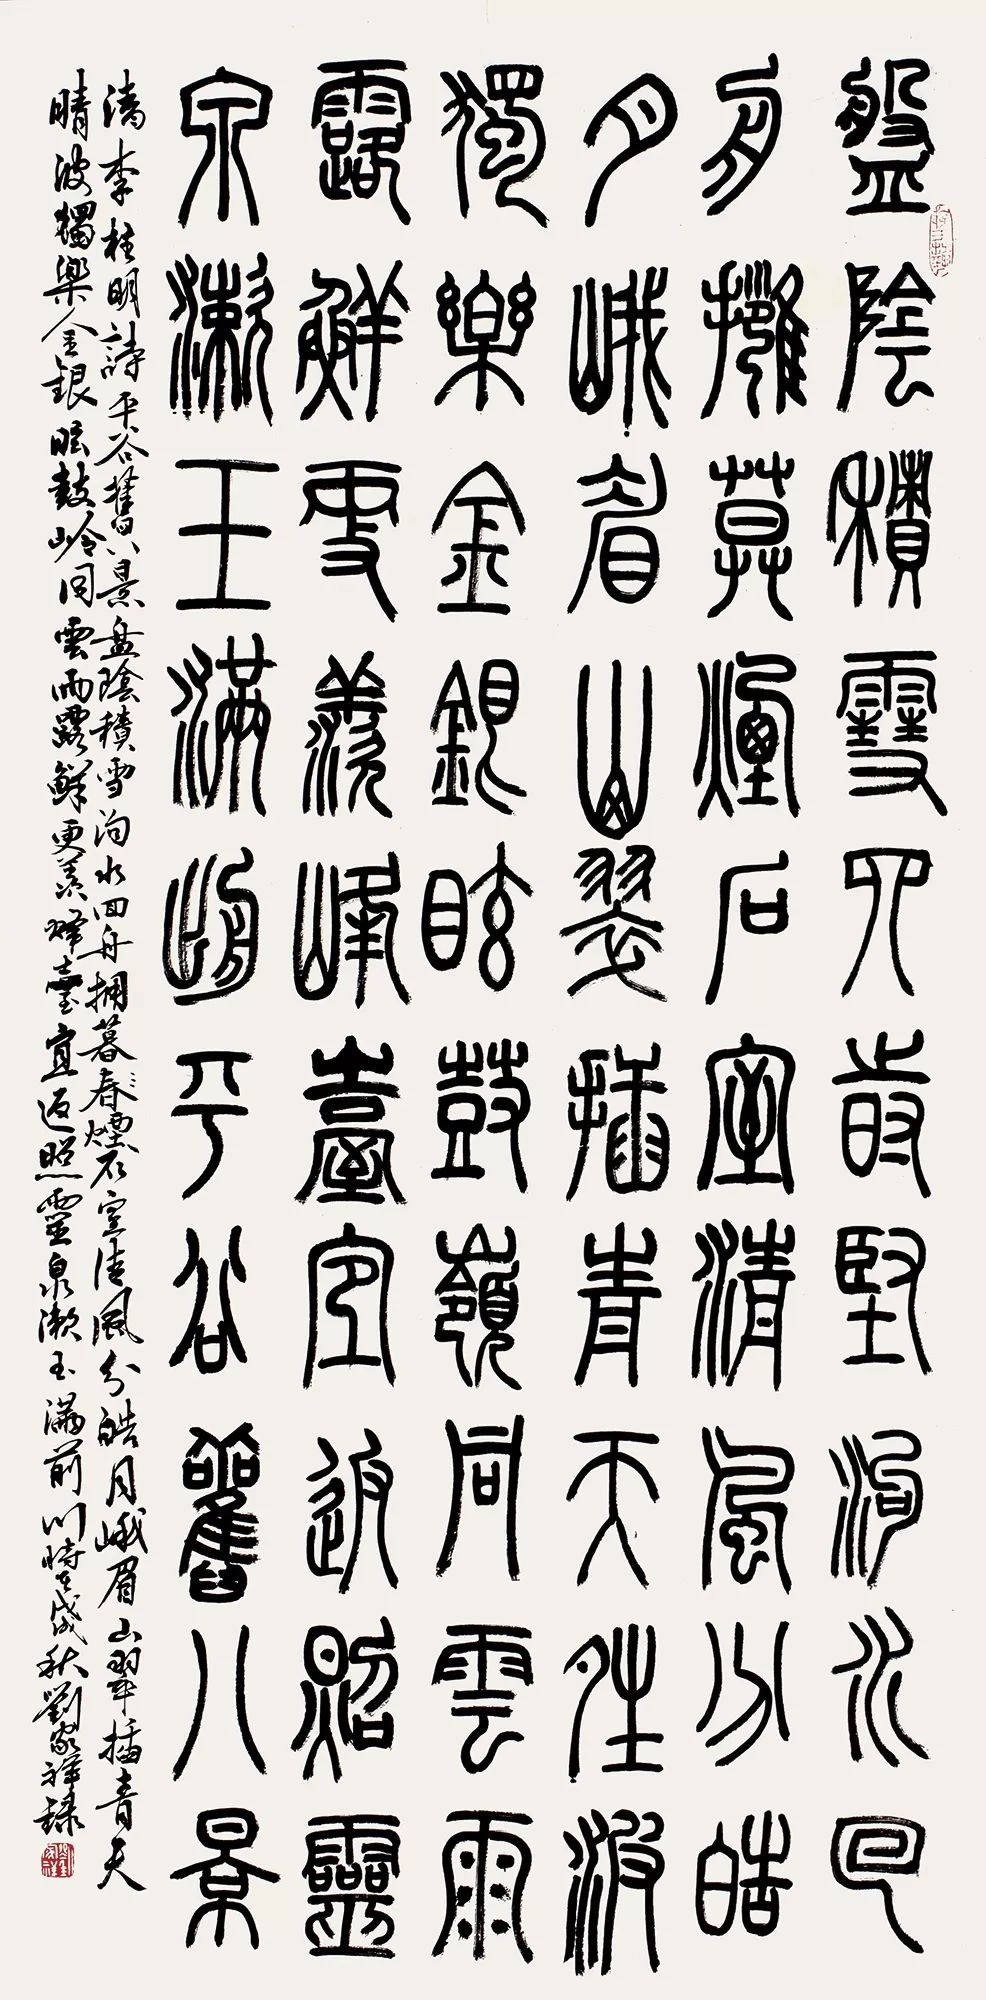 盤陰積雪四時堅泃水回
舟擁莫煙石室清風分皓
月峨眉山翠插青天晴波
獨樂金銀眩鼓嶺同雲雨
露鮮更羨峰臺宜返照靈
泉漱玉滿前平谷舊八景
清李柱明詩平谷舊八景盤陰積雪泃水回舟擁暮春煙石室清風分皓月峨眉山翠插青天
晴波獨樂金銀眩鼓嶺同雲雨露鮮更羨峰臺宜返照靈泉漱玉滿前川時在戌秋劉家祥録